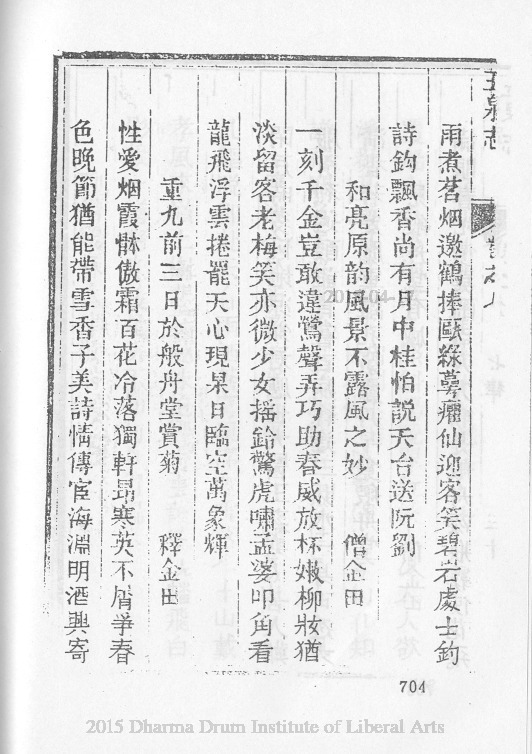 玉泉志
卷之八
雨煮茗烟邀鶴捧甌綠萼癯仙迎客笑碧若處士釣
詩鈎飄香尚有月中桂怕說天台送阮劉
和亮原韵風景不露風之妙 僧金田
一刻千金豈敢違鶯聲弄巧助春威放杯嫩柳妝猶
淡留客老梅笑亦微少女摇鈴驚虎嘯孟婆叩角看
龍飛浮雲捲罷天心現杲日臨空萬象輝
重九前三日於般舟堂賞菊 釋金田
性愛烟霞骵傲霜百花冷落獨軒昂寒英不屑爭春
色晚節猶能帶雪香子美詩情傳宦海淵明酒興寄
704
2015 Dharma Drum Institute of Liberal Arts